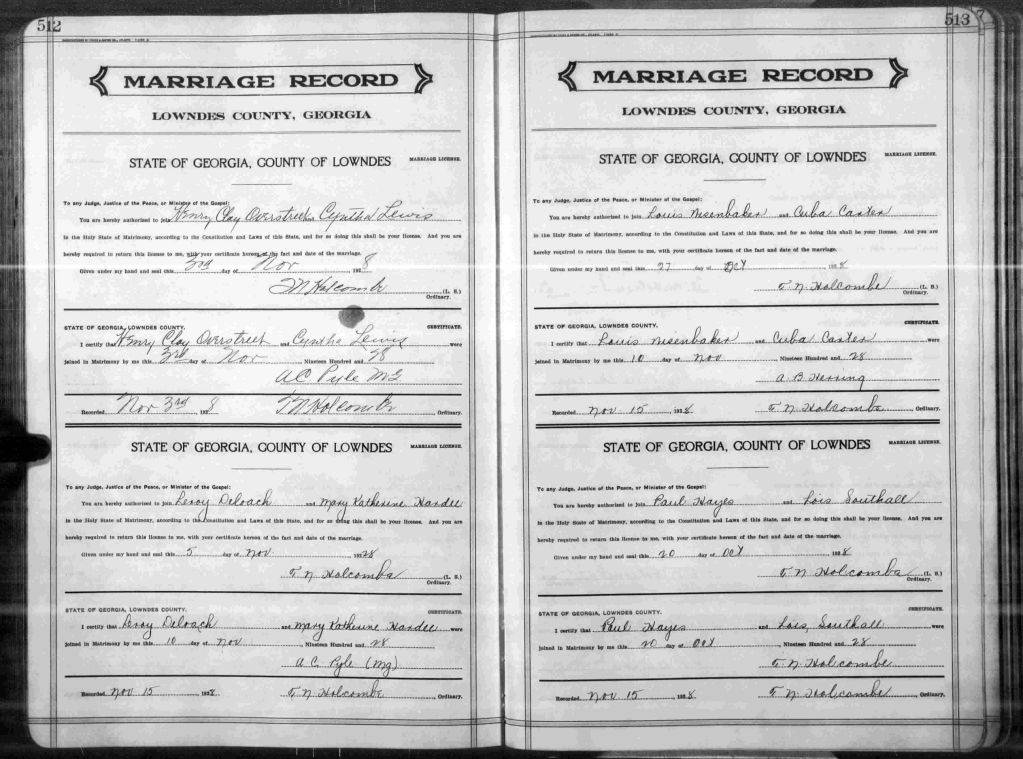 512
MARRIAGE RECORD
LOWNDES COUNTY, GEORGIA
STATE OF GEORGIA, COUNTY OF LOWNDES MARRIAGE LICENSE.
To any Judge, Justice of the Peace, or Minister of the Gospel:
You are hereby authorized to join Henry Clay Overstreet and Cyntha Lewis
in the Holy State of Matrimony, according to the Constitution and Laws of this State, and for so doing this shall be your license. And you are
hereby required to return this license to me, with your certificate hereon of the fact and date of the marriage.
Given under my hand and seal this 3rd day of Nov 1928
T N Holcombe (L. S.)
Ordinary.
STATE OF GEORGIA, LOWNDES COUNTY. CERTIFICATE.
I certify that Henry Clay Overstreet and Cyntha Lewis were
joined in Matrimony by me this 3rd day of Nov Nineteen Hundred and 28
A C Pyle MG
Recorded Nov 3rd, 1928 T N Holcombe Ordinary.
STATE OF GEORGIA, COUNTY OF LOWNDES MARRIAGE LICENSE.
To any Judge, Justice of the Peace, or Minister of the Gospel:
You are hereby authorized to join Leroy Deloach and Mary Katherine Hardee
in the Holy State of Matrimony, according to the Constitution and Laws of this State, and for so doing this shall be your license. And you are
hereby required to return this license to me, with your certificate hereon of the fact and date of the marriage.
Given under my hand and seal this 5 day of Nov 1928
T. N. Holcombe (L. S.)
Ordinary.
STATE OF GEORGIA, LOWNDES COUNTY. CERTIFICATE.
I certify that Leroy Deloach and Mary Katherine Hardee were
joined in Matrimony by me this 10 day of Nov Nineteen Hundred and 28
A. C. Pyle (MG)
Recorded Nov 15, 1928 T. N. Holcombe Ordinary.
513
MARRIAGE RECORD
LOWNDES COUNTY, GEORGIA
STATE OF GEORGIA, COUNTY OF LOWNDES MARRIAGE LICENSE.
To any Judge, Justice of the Peace, or Minister of the Gospel:
You are hereby authorized to join Louis Nesenbaker and Cuba Carter
in the Holy State of Matrimony, according to the Constitution and Laws of this State, and for so doing this shall be your license. And you are
hereby required to return this license to me, with your certificate hereon of the fact and date of the marriage.
Given under my hand and seal this 27 day of Oct 1928
T. N. Holcombe (L. S.)
Ordinary.
STATE OF GEORGIA, LOWNDES COUNTY. CERTIFICATE.
I certify that Louis Nesenbaker and Cuba Carter were
joined in Matrimony by me this 10 day of Nov Nineteen Hundred and 28
A. B. Herring
Recorded Nov 15 1928 T. N. Holcombe Ordinary.
STATE OF GEORGIA, COUNTY OF LOWNDES MARRIAGE LICENSE.
To any Judge, Justice of the Peace, or Minister of the Gospel:
You are hereby authorized to join Paul Hayes and Lois Southall
in the Holy State of Matrimony, according to the Constitution and Laws of this State, and for so doing this shall be your license. And you are
hereby required to return this license to me, with your certificate hereon of the fact and date of the marriage.
Given under my hand and seal this 20 day of Oct 1928
T. N. Holcombe (L. S.)
Ordinary.
STATE OF GEORGIA, LOWNDES COUNTY. CERTIFICATE.
I certify that Paul Hayes and Lois, Southall were
joined in Matrimony by me this 20 day of Oct Nineteen Hundred and 28
T. N. Holcombe
Recorded Nov 15, 1928 T. N. Holcombe Ordinary.